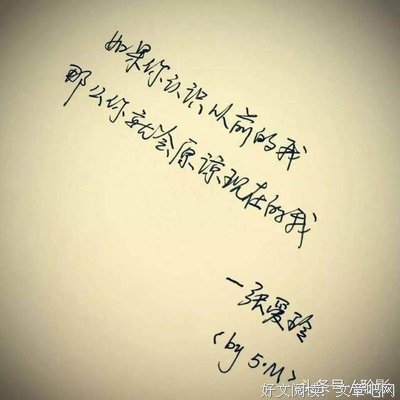 如果你认识从前的我
那么你就会原谅现在的我
一张爱玲
<by S·M>
头条号/
好文阅读：文章吧网